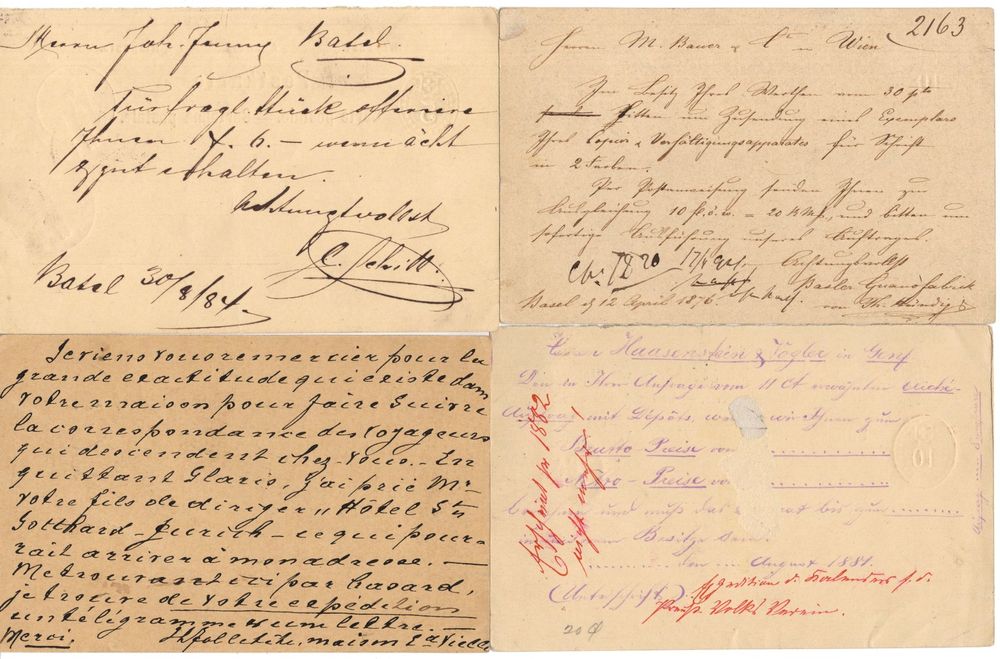 Herrn Joh. Jenny Basel.
Für fragl. Stück offerire
Ihnen 6. – wenn ächt
& gut erhalten.
Achtungsvollst
C. Schill.
Basel 30/8/84.
2163
Herren M. Bauer & Cie in Wien
Im Besitz Ihres Werthen vom 30 pto
bitten um Zusendung eines Exemplars
Ihres Copir & Verfältigungsapparates für Schrift
in 2 Farben.
Per Postanweisung senden Ihnen zur
Ausgleichung 10 fl. ö. w. = 20 und bitten um
sofertige Ausführung unseres Auftrages.
Achtungsvollst
Basler Guanofabrik
Basel d. 12 April 1876
von Th.
Je viens vous remercier pour la
grande exactitude qui existe dans
votre maison pour faire suivre
la correspondance des voyageurs
qui descendent chez vous. – En
quittant Glaris, j'ai prié Mr
votre fils de diriger „ Hôtel St
Gotthard – Zurich – ce qui pour-
rait arriver à mon adresse. –
Me trouvant ici par hasard,
je trouve de votre expédition
un télégramme & une lettre. –
Merci. maison
Herren Haasenstein & Vogler in Genf
Den in Ihrer Anfrage vom 11 Ct erwähnten
mit Dépôts, wir Ihnen zum
Brutto – Preise von
Netto – Preise von
und muß das bis zum
Besitze sein.
den August 1881.
(Unterschrift)
Expedition d. Kalenders f. d.
Preuß. Volks Verein.
Erscheint pr 1882
nicht mehr!
10
20